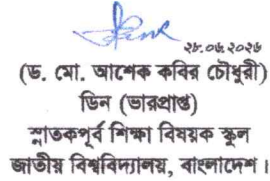 ২৮.০৬.২০২৬
(ড. মো. আশেক কবির চৌধুরী)
ডিন (ভারপ্রাপ্ত)
স্নাতকপূর্ব শিক্ষা বিষয়ক স্কুল
জাতীয় বিশ্ববিদ্যালয়, বাংলাদেশ।